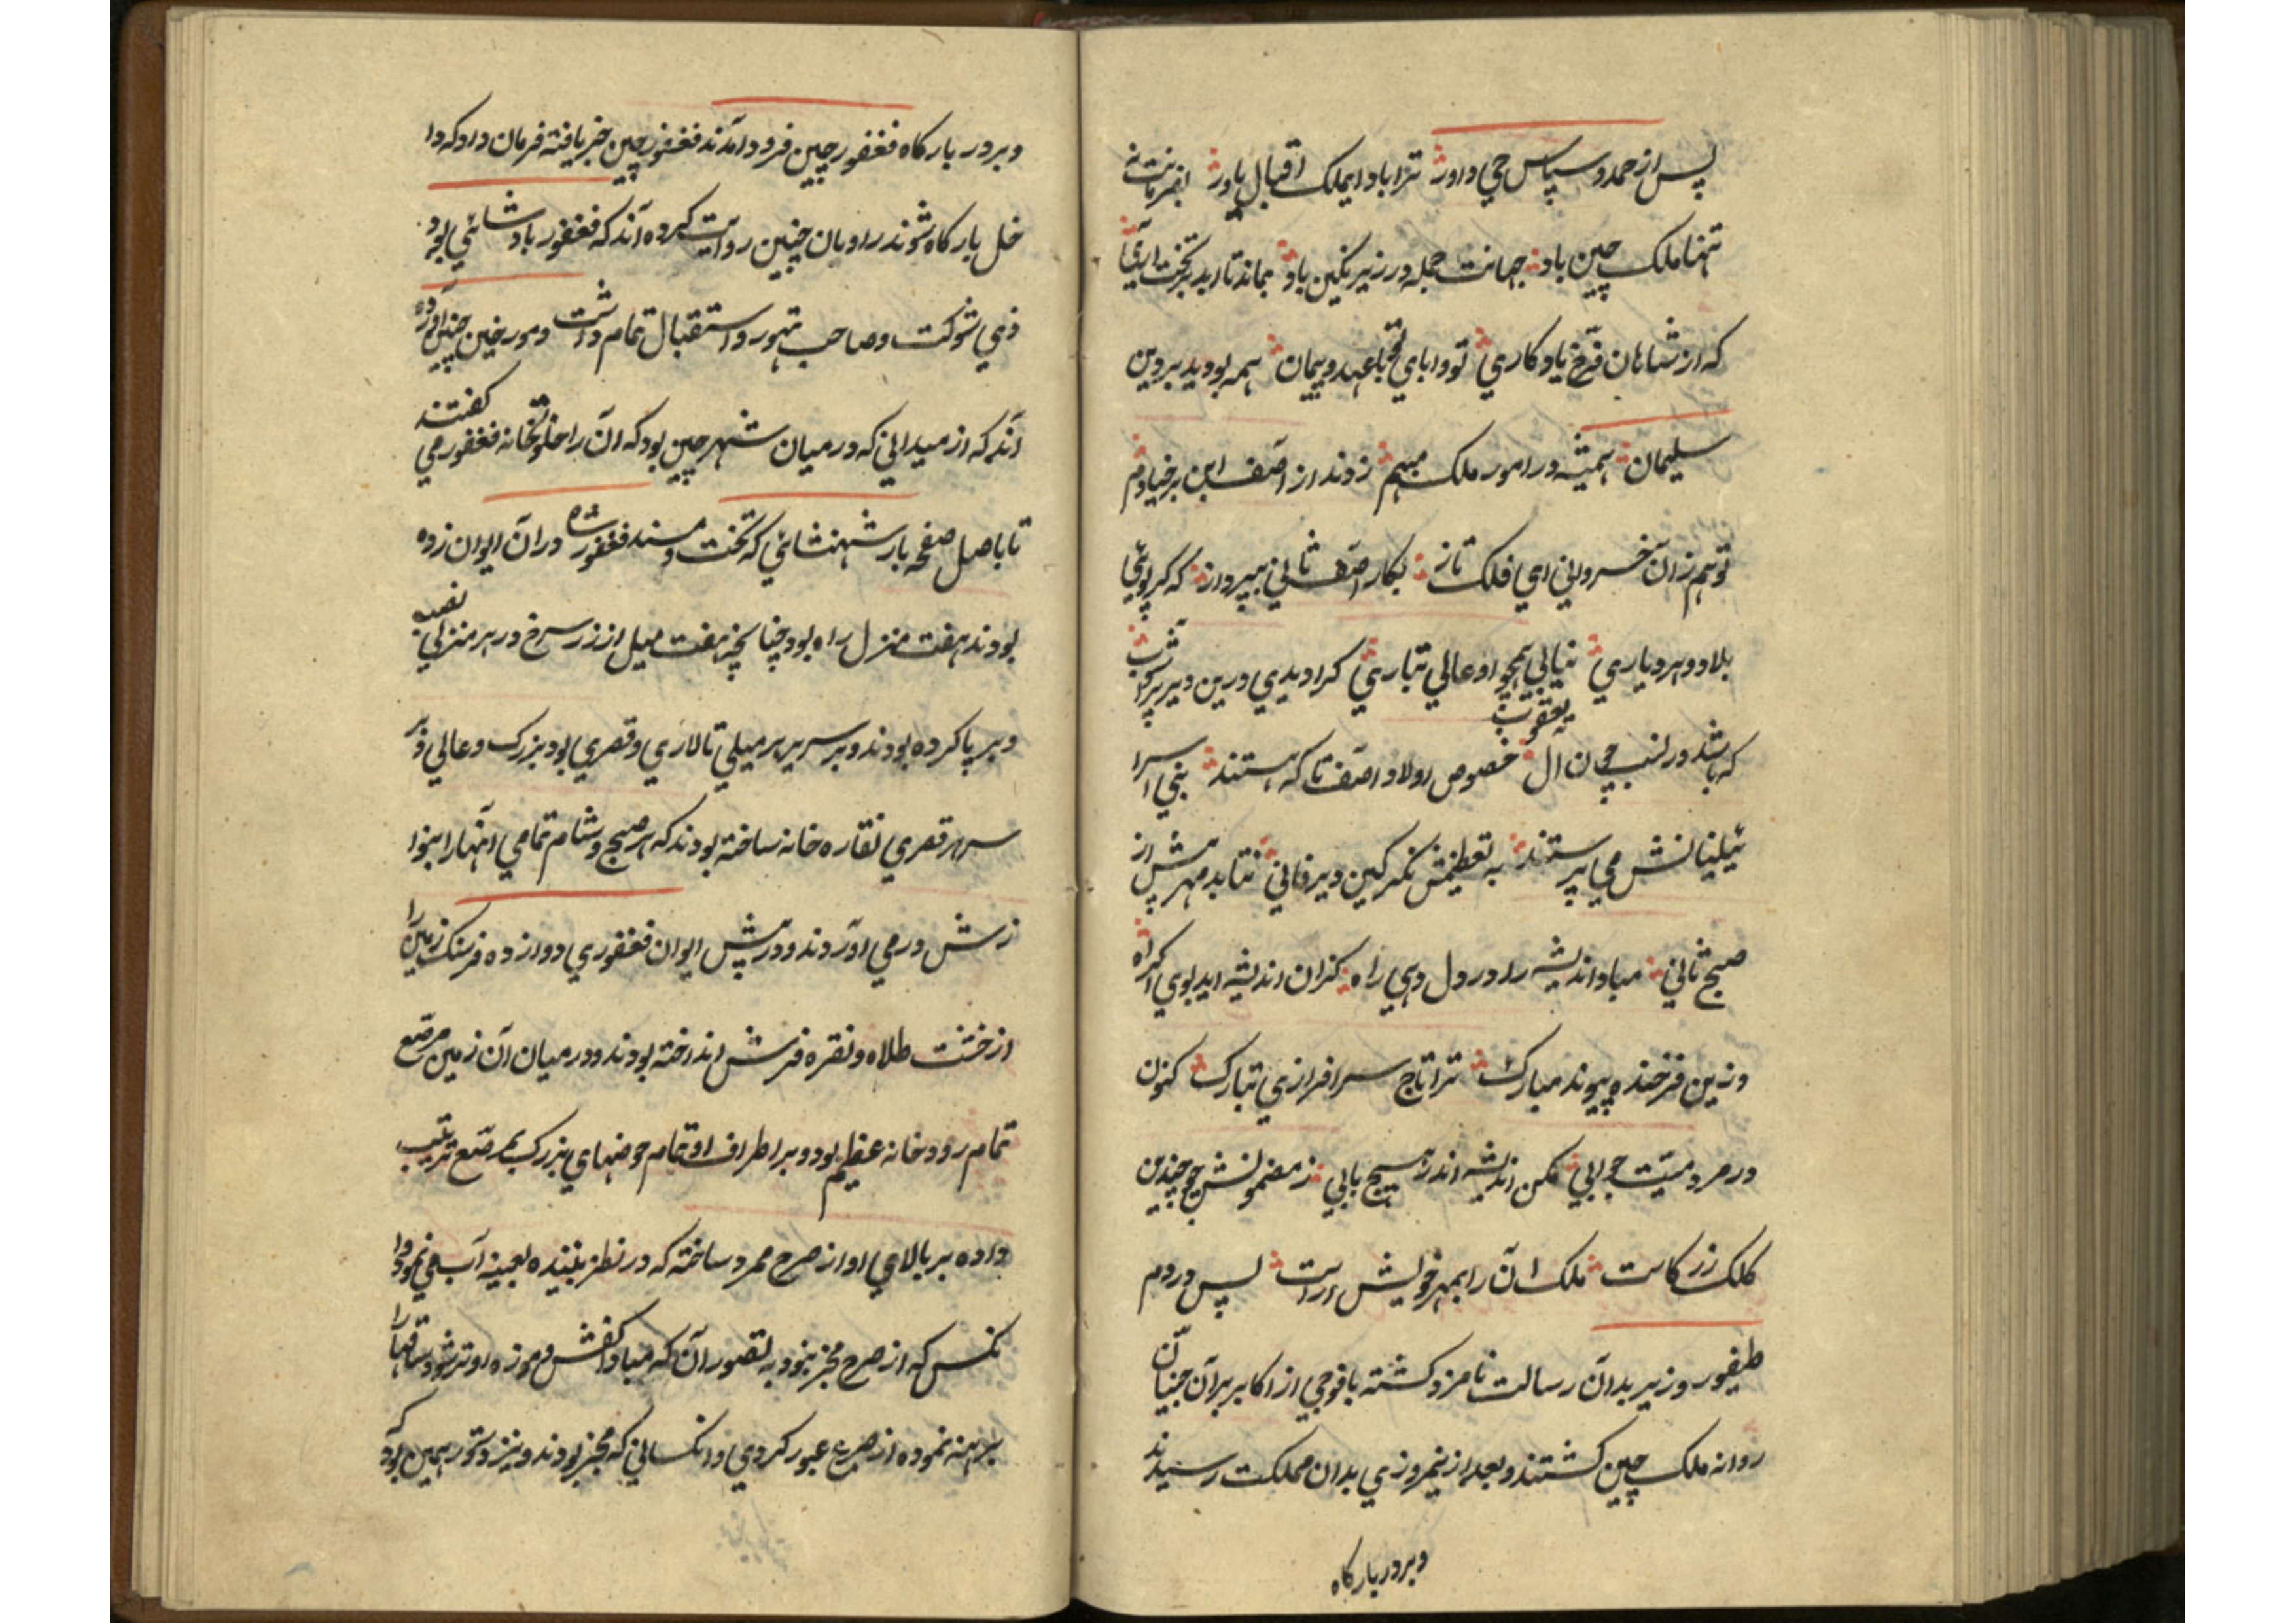 پس از حمد و سپاس حي داور ترا باد ايملک اقبال ياور بفرمانت نه
تنها ملک چين باد جهانت جمله در زير نگين باد بماند تا ابد بر تخت آري
که از شاهان فرخ يادکاري تو و اباي تو با عهد و پيمان همه بوديد بر دين
سليمان هميشه در امور ملک مبهم زدند از اصف ابن برخيا دم
تو هم زان خسرواني اي فلک تاز بکار اصف ثاني بپرداز که کر پوئي
بلاد و هر دياري نيابي همچو او عالي تباري کرا ديدي درين دير پر آشوب
که باشد در نسب چون آل يعقوب خصوص اولاد اصف تا که هستند بني اسرا
ئيليانش مي پرستند به تعظيمش نکر کين دير فاني نتابد مهرش از
صبح ثاني مباد انديشه را در دل دهي راه کزان انديشه ايد بوي اکراه
وزين فرخنده پيوند مبارک ترا تاج سرافرازي تبارک کنون
در مردميت جوابي مکن انديشه اندر هيچ بابي ز مضمونش چو چندين
کلک زر کاست ملک آن را بمهر خويش اراست پس در دم
طيفور وزير بدان رسالت نامزد کشته با فوجي از اکابر بران جنيان
روانه ملک چين کشتند و بعد از نيمروزي بدان مملکت رسيدند
و بر در بارکاه
و بر در بارکاه فغفور چين فرود آمدند فغفور چين خبر يافته فرمان داد که دا
خل بارکاه شوند راويان چنين روايت کرده آند که فغفور بادشائي بود
ذي شوکت و صاحب تهور و استقبال تمام داشت و مورخين چنين آورده
آند که از ميداني که در ميان شهر چين بود که آن را خلوتخانه فغفور مي کفتند
تا باصل صفحه بار شهنشائي که تخت و مسند فغفور شاه در آن ايوان زده
بودند هفت منزل راه بود چنانچه هفت ميل از زر سرخ در هر منزلي نصب
و بر پا کرده بودند و بر سر هر ميلي تالاري و قصري بود بزرک و عالي و بر
سر هر قصري نقاره خانه ساخته بودند که هر صبح و شام تمامي انها را بنوا
زش در مي اوردند و در پيش ايوان فغفوري دوازده فرسنک زمين را
از خشت طلاه و نقره فرش انداخته بودند و در ميان آن زمين مرصّع
تمام رودخانه عظيم بود و بر اطراف او تمام حوضهاي بزرک مرصّع ترتيب
داده بر بالاي او از صرح ممرد ساخته که در نظر بيننده بعينه آب مي نمود وا
نکس که از صرح مخبر نبود به تصور آن که مبادا کفش و موزه او تر شود ساقها را
برهنه نموده از صرح عبور کردي و انکساني که مخبر بودند و نيز دستور همين بود که